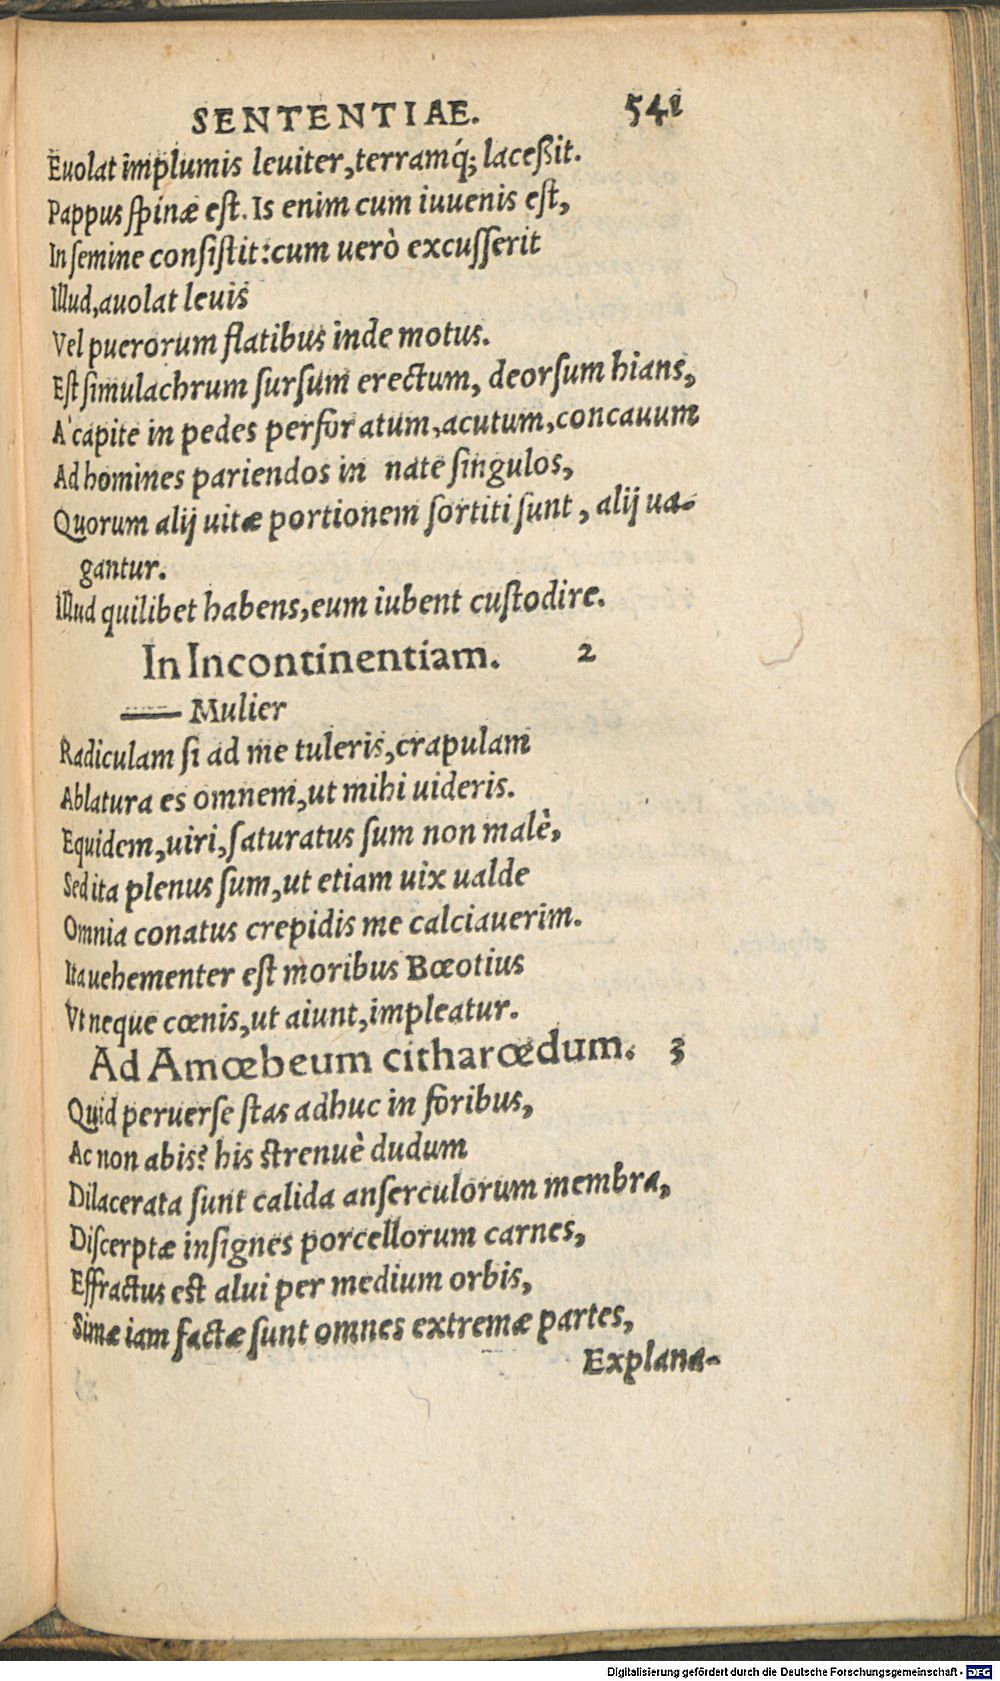 SENTENTIAE. 541
Euolat implumis leuiter, terramq́; laceßit.
Pappus spinæ est. Is enim cum iuuenis est,
In semine consistit: cum uerò excusserit
Illud, auolat leuis
Vel puerorum flatibus inde motus.
Est simulachrum sursum erectum, deorsum hians,
A' capite in pedes perforatum, acutum, concauum
Ad homines pariendos in nate singulos,
Quorum alij uitæ portionem sortiti sunt, alij ua-
gantur.
Illud quilibet habens, eum iubent custodire.
In Incontinentiam. 2
—— Mulier
Radiculam si ad me tuleris, crapulam
Ablatura es omnem, ut mihi uideris.
Equidem, uiri, saturatus sum non malè,
Sed ita plenus sum, ut etiam uix ualde
Omnia conatus crepidis me calciauerim.
Ita uehementer est moribus Bœotius
Vt neque cœnis, ut aiunt, impleatur.
Ad Amœbeum citharœdum. 3
Quid peruerse stas adhuc in foribus,
Ac non abis? his strenuè dudum
Dilacerata sunt calida anserculorum membra,
Discerptæ insignes porcellorum carnes,
Effractus est alui per medium orbis,
Simæ iam factæ sunt omnes extremæ partes,
Explana-
Digitalisierung gefördert durch die Deutsche Forschungsgemeinschaft - DFG